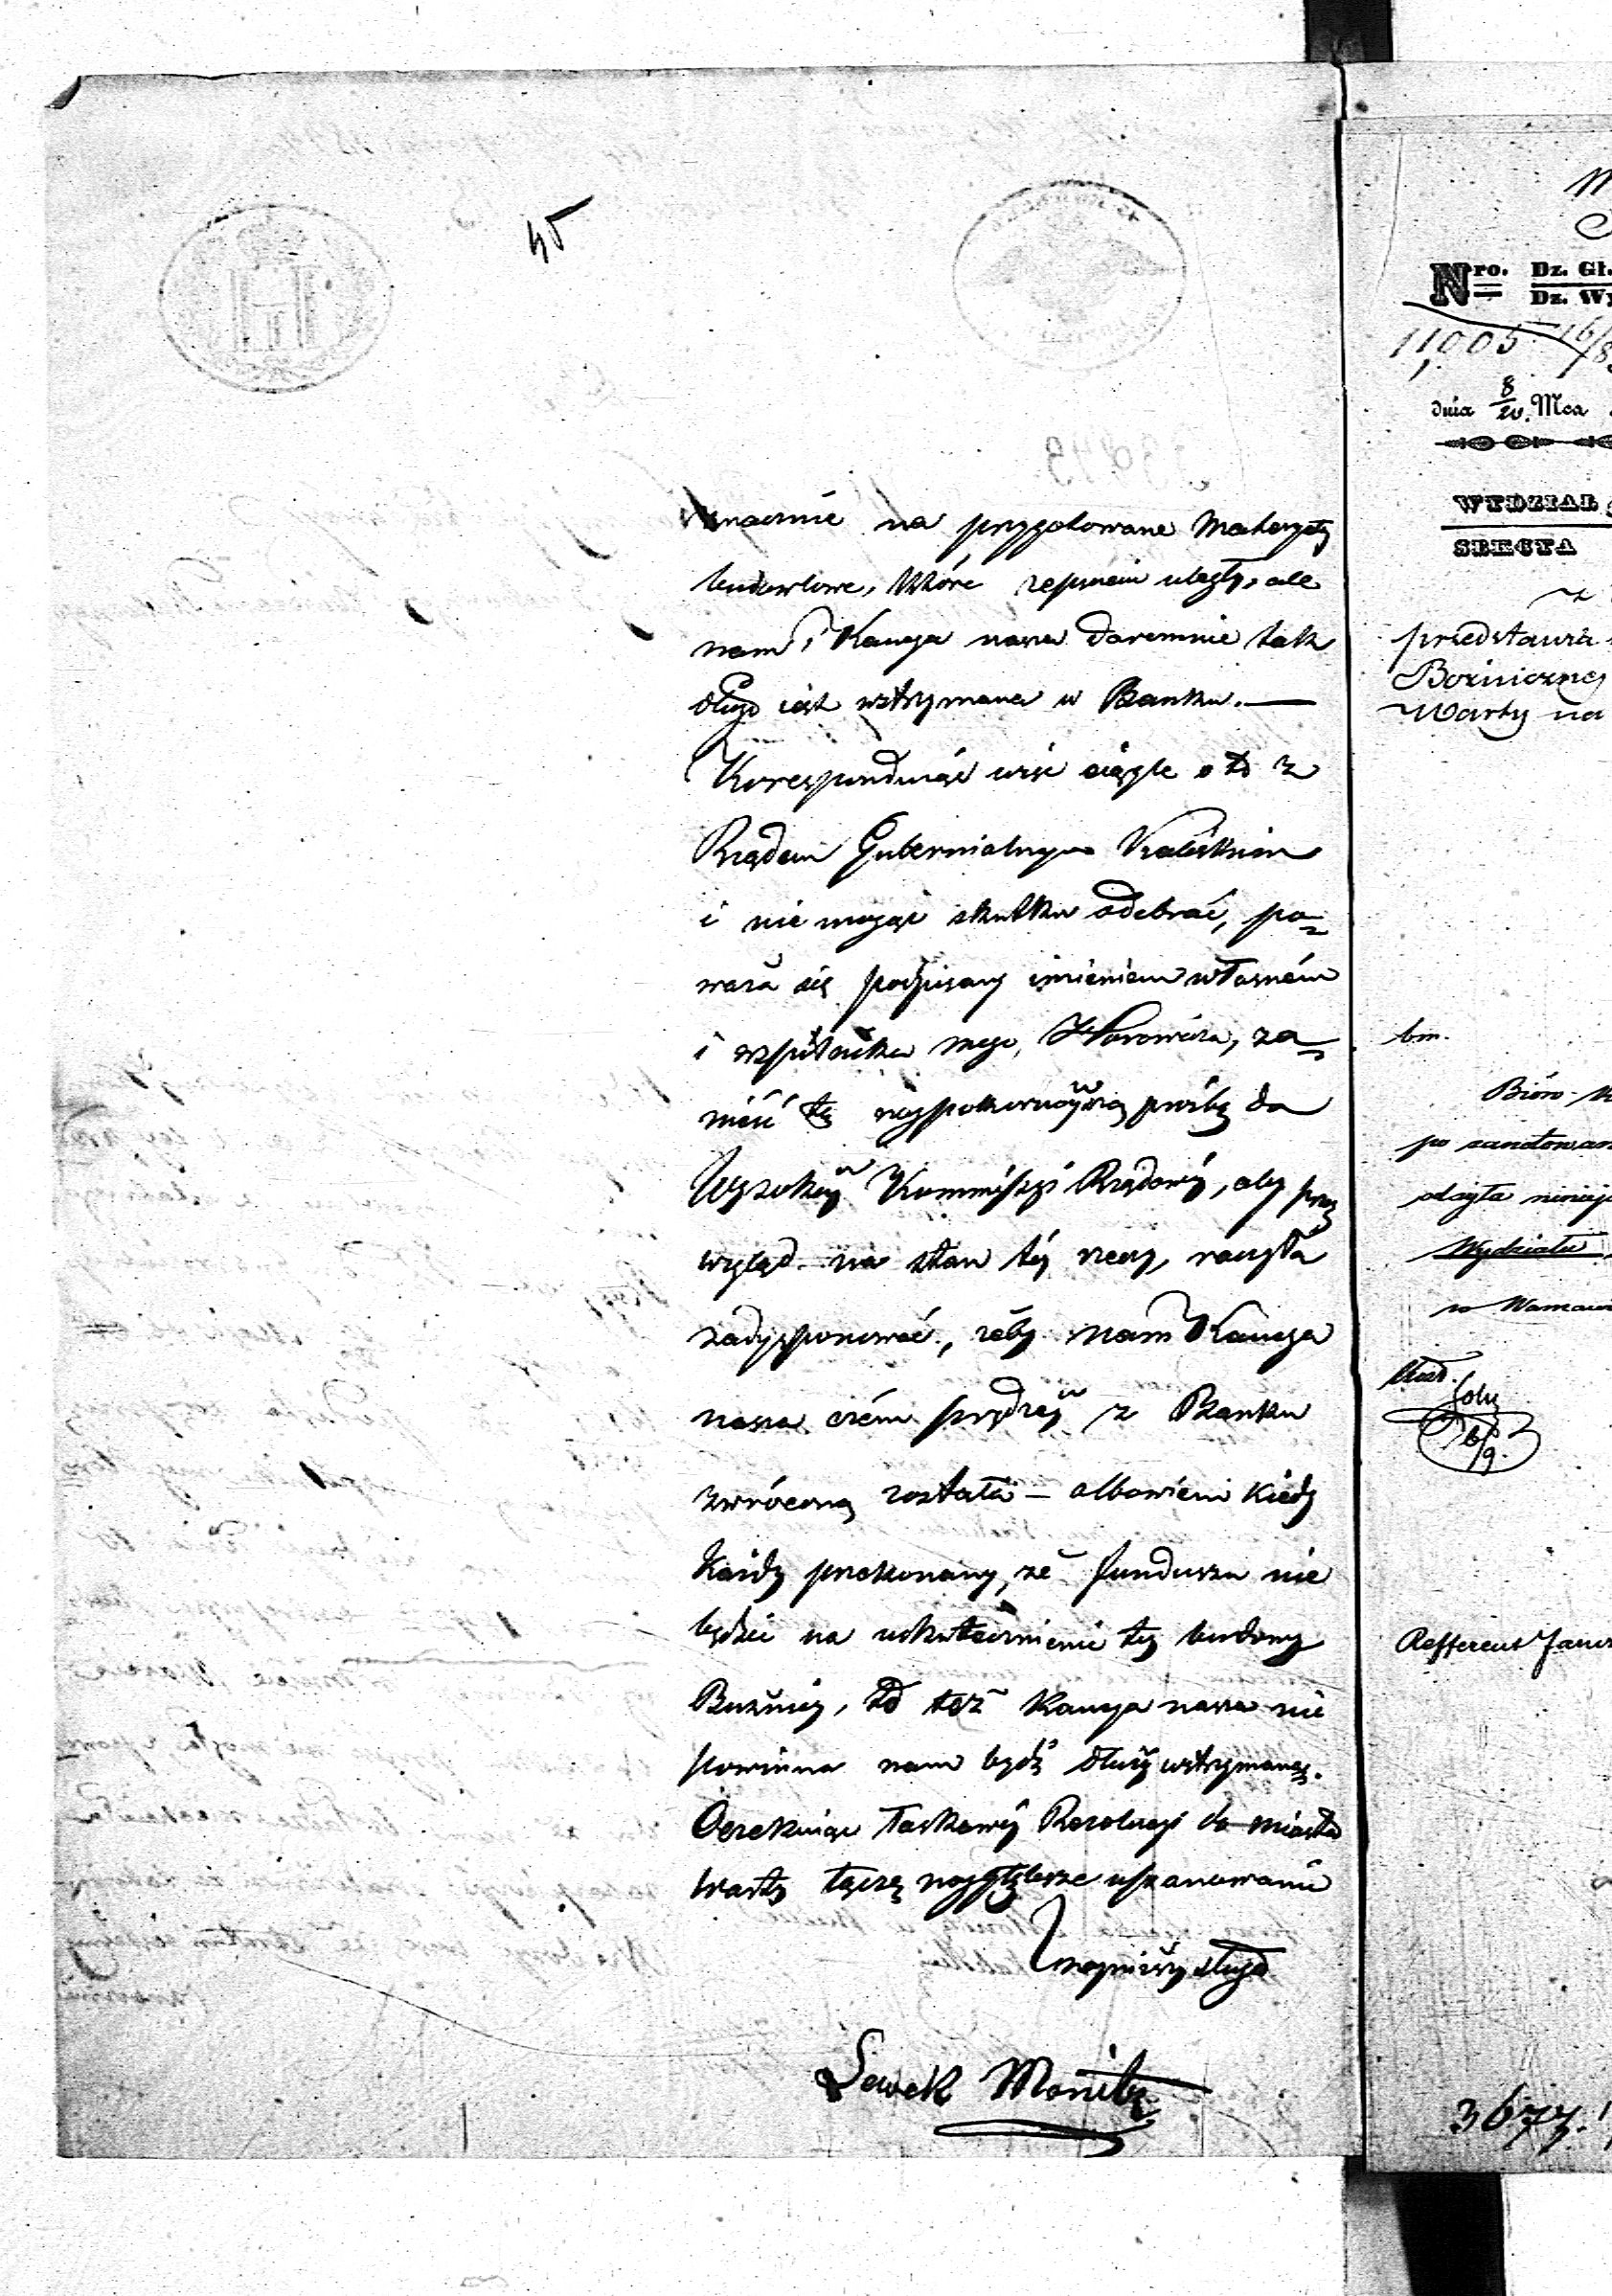 45
znacznie na przygotowane Materyały
budowlowe, które zepsuciu uległy, ale
nam i Kaucya nasza daremnie tak
długo iest wstrzymana w Banku. —
Korespondując więc ciągle o to z
Rządem Gubernialnym Kaliskim
i nie mogąc skutku odebrać, po=
waża się podpisany imieniem własném
i wspólnika mego, za=
nieść tę najpokorniejszą prośbę do
Wysokiéj Kommissyi Rządowéj, aby przez
wzgląd na stan téj rzeczy, raczyła
zadysponować, żeby nam Kaucya
nasza czém prędzéj z Banku
zwróconą została — albowiem kiedy
każdy przekonany, że funduszu nie
będzie na uskutecznienie téj budowy
Bużnicy, to też Kaucya nasza nie
powinna nam bydź dłużéj wstrzymaną.
Oczekując łaskawéj Rezolucyi do miasta
Warty łączę najgłębsze uszanowanie
Unajniższy sługa
Lewek Monitz
Nro. Dz. Gł.
Dz. Wy
11,005 16/8
dnia 8/20. Mca
WYDZIAŁ
SEKCYA
przedstawia
Bożniczney
Warty na
bm.
Bióro
po zanotowan
odayła niniey
Wydziału
w Warszawi
Refferent Janus
3677.